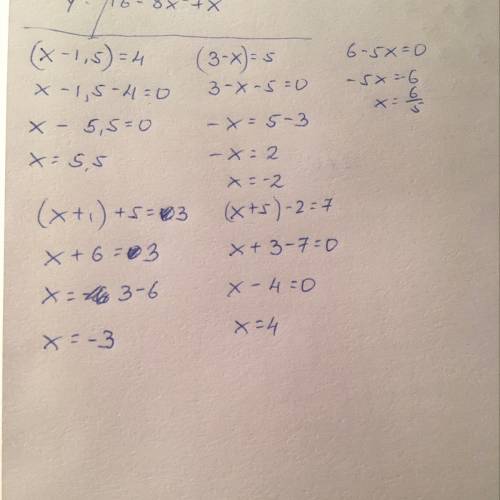 (x-1,5)=4
x-1,5-4=0
x-5,5=0
x=5,5
(3-x)=5
3-x-5=0
-x=5-3
-x=2
x=-2
6-5x=0
-5x=-6
x=6/5
(x+1)+5=3
x+6=3
x=3-6
x=-3
(x+5)-2=7
x+3-7=0
x-4=0
x=4